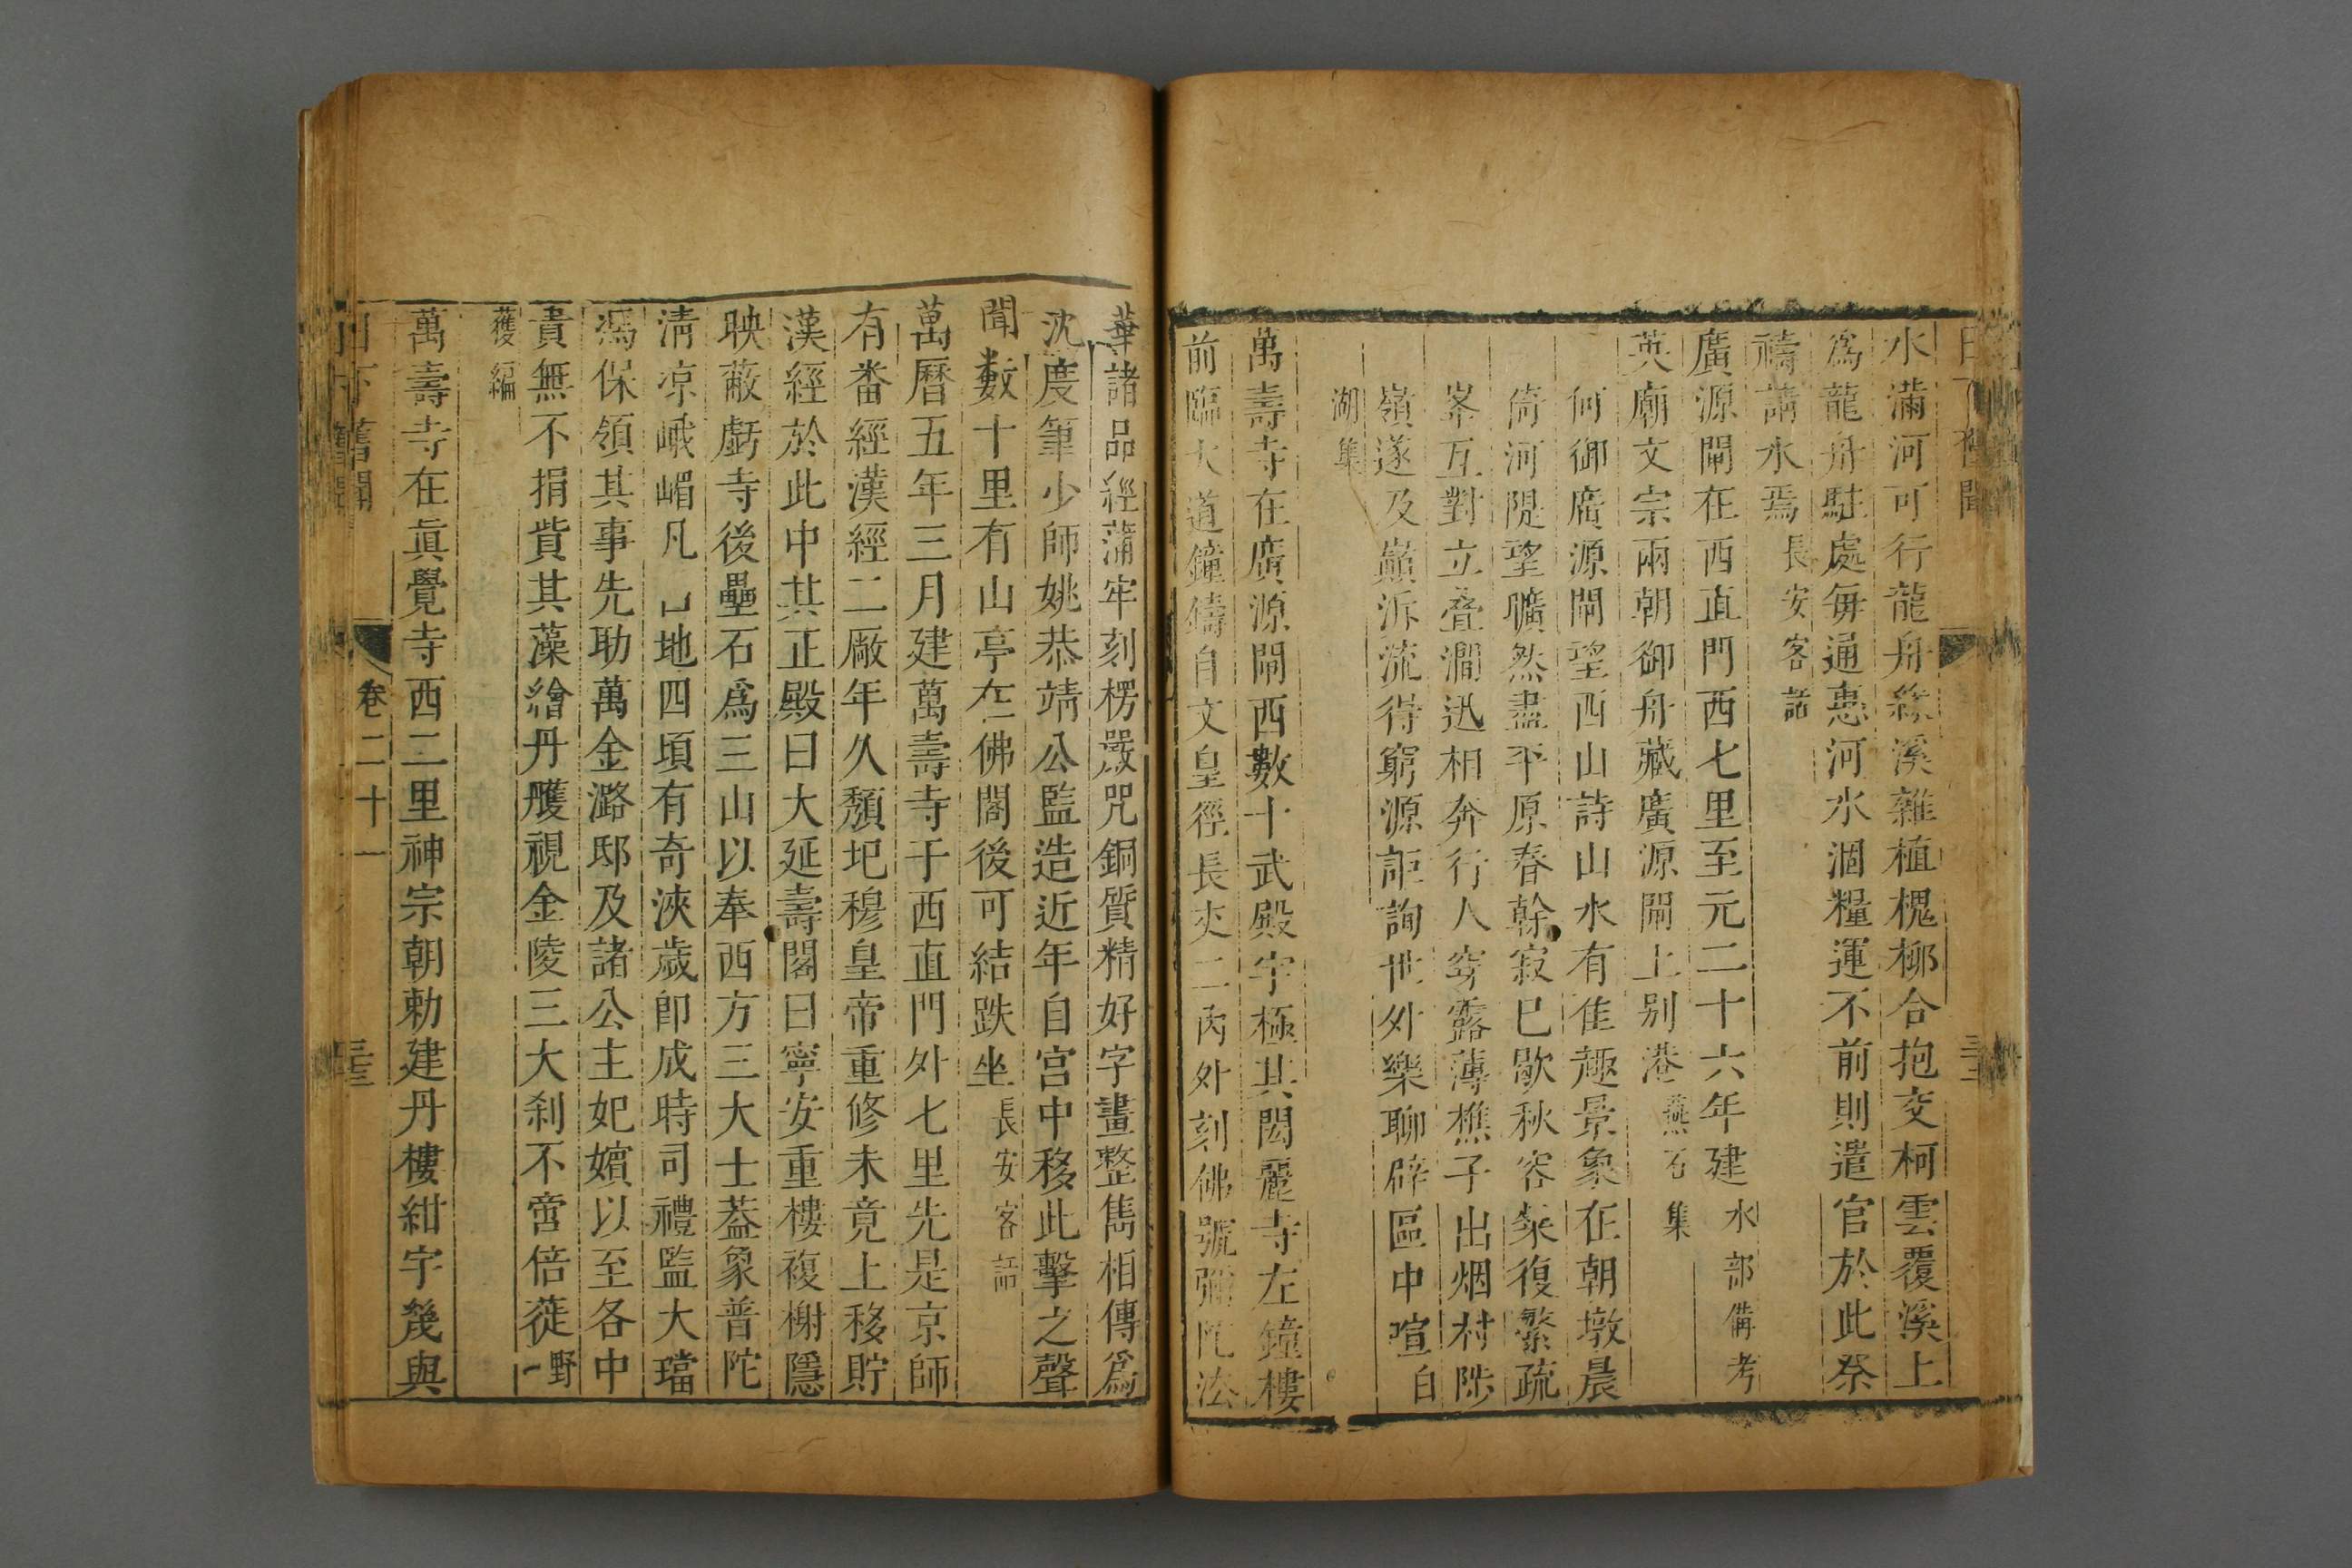 日下舊聞
水滿河可行龍舟緣溪雜植槐柳合抱交柯雲覆溪上
爲龍舟駐處每通惠河水涸糧運不前則遣官於此祭
禱請水焉長安客話
廣源閘在西直門西七里至元二十六年建水部備考
英廟文宗兩朝御舟藏廣源閘上别港燕石集
何御廣源閘望西山詩山水有佳趣景象在朝墩晨
倚河隄望曠然盡平原春榦寂已歇秋容築復繁疏
峯互對立叠澗迅相奔行人穿露薄樵子出烟村陟
嶺遂及巔泝流得窮源詎詢世外樂聊辟區中喧白
湖集
萬壽寺在廣源閘西數十武殿宇極其閎麗寺左鐘樓
前臨大道鐘鑄自文皇徑長丈二内外刻佛號彌陀法
華諸品經蒲牢刻楞嚴咒銅質精好字畫整雋相傳爲
沈度筆少師姚恭靖公監造近年自宫中移此擊之聲
聞數十里有山亭在佛閣後可結趺坐長安客話
萬曆五年三月建萬壽寺于西直門外七里先是京師
有番經漢經二厰年久頽圮穆皇帝重修未竟上移貯
漢經於此中其正殿曰大延壽閣曰寧安重樓複榭隱
映蔽虧寺後壘石爲三山以奉西方三大士葢象普陀
淸凉峨嵋凡地四頃有奇浹歲卽成時司禮監大璫
馮保領其事先助萬金潞邸及諸公主妃嬪以至各中
貴無不捐貲其藻繪丹雘視金陵三大刹不啻倍蓰野
獲編
萬壽寺在眞覺寺西二里神宗朝勅建丹樓紺宇幾與
日下舊聞 卷二十一